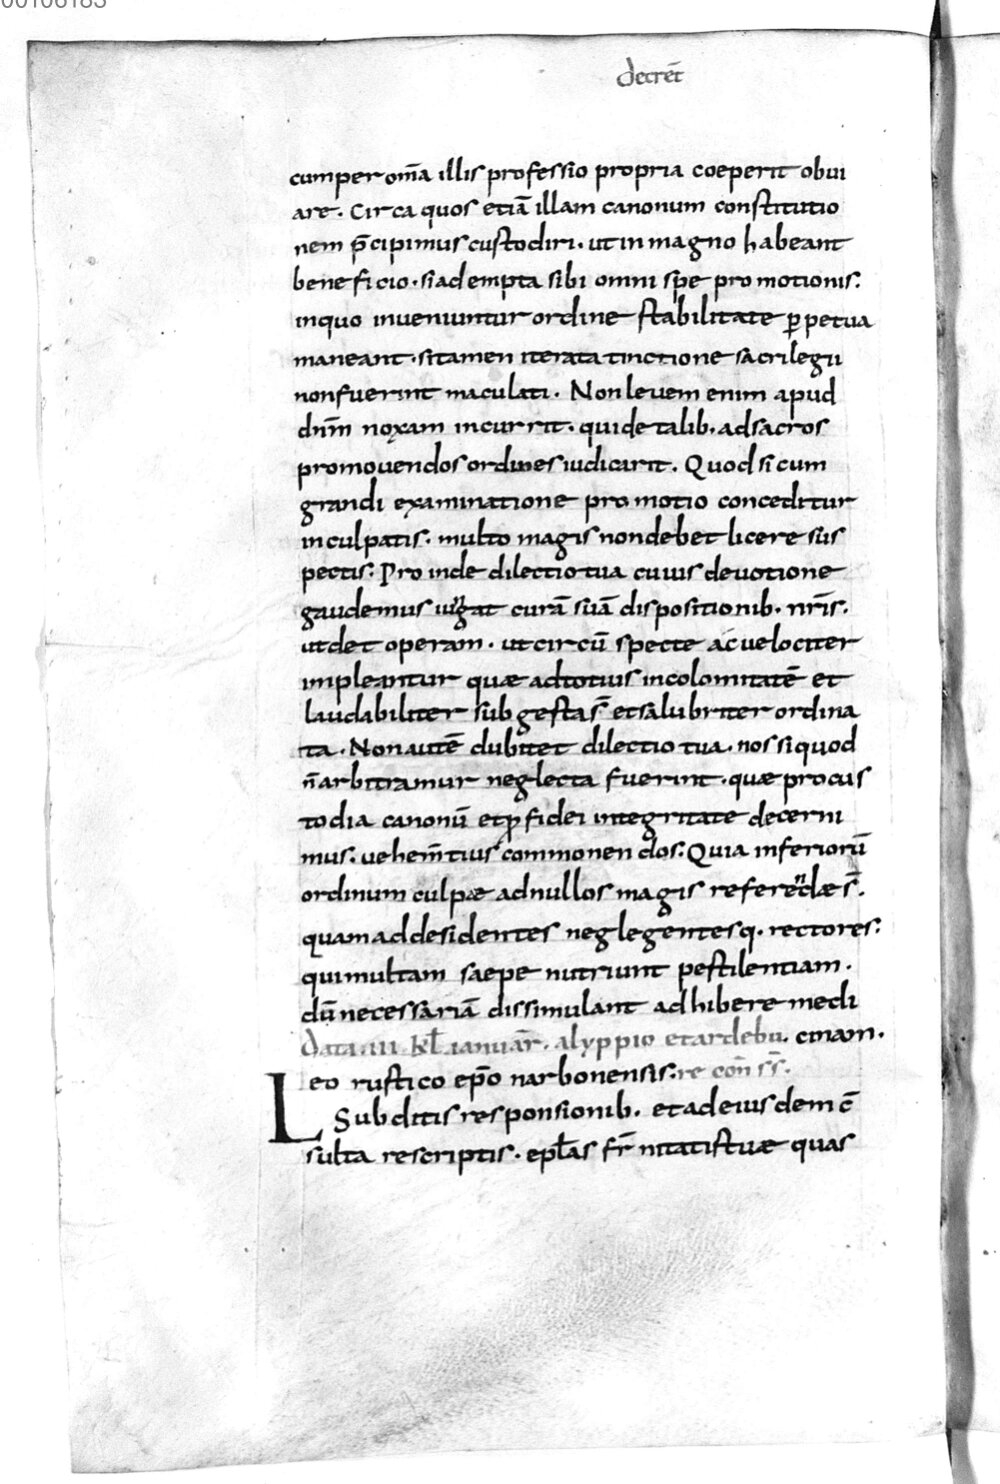 00106183
decret̄
cum per om̄a illis professio propria coeperit obui
are. Circa quos etiā illam canonum constitutio
nem p̄cipimus custodiri. ut in magno habeant
beneficio. si adempta sibi omni spe promotionis.
in quo inueniuntur ordine stabilitate ꝑpetua
maneant. si tamen iterata tinctione sacrilegii
non fuerint maculati. Non leuem enim apud
dnm̄ noxam incurrit. qui de talib. ad sacros
promouendos ordines iudicarit. Quod si cum
grandi examinatione promotio conceditur
inculpatis. multo magis non debet licere sus
pectis. Proinde dilectio tua cuius deuotione
gaudemus iungat curā suā dispositionib. nr̄is.
ut det operam. ut circū specte ac uelociter
impleantur quae ad totius incolomitatē et
laudabiliter sub gesta s̄ et salubriter ordina
ta. Non autē dubitet dilectio tua. nos si quod
n̄ arbitramur neglecta fuerint. quae pro cus
todia canonū et ꝓ fidei integritate decerni
mus. uehem̄tius commonendos. Quia inferiorū
ordinum culpae ad nullos magis referendae s̄.
quam ad desidentes neglegentesq. rectores.
qui multam saepe nutriunt pestilentiam.
dū necessariā dissimulant adhibere medi
Data. III. kl̄. ianuar̄. alyppio et ardebu. cinam.
Leo rustico ep̄o narbonensis. re con̄ ss̄.
Subditis responsionib. et ad eiusdem c̄
sulta rescriptis. epl̄as fr̄nitatis tuae quas